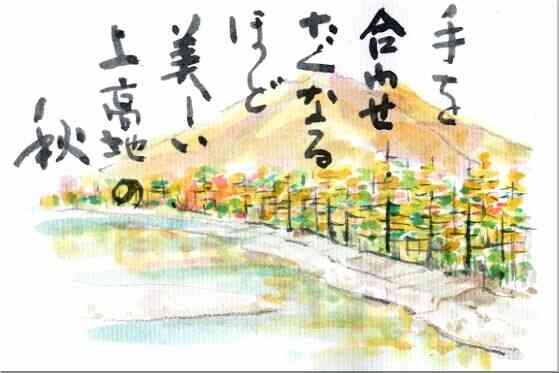 手を
合わせ
たくなる
ほど
美しい
上高地の
秋